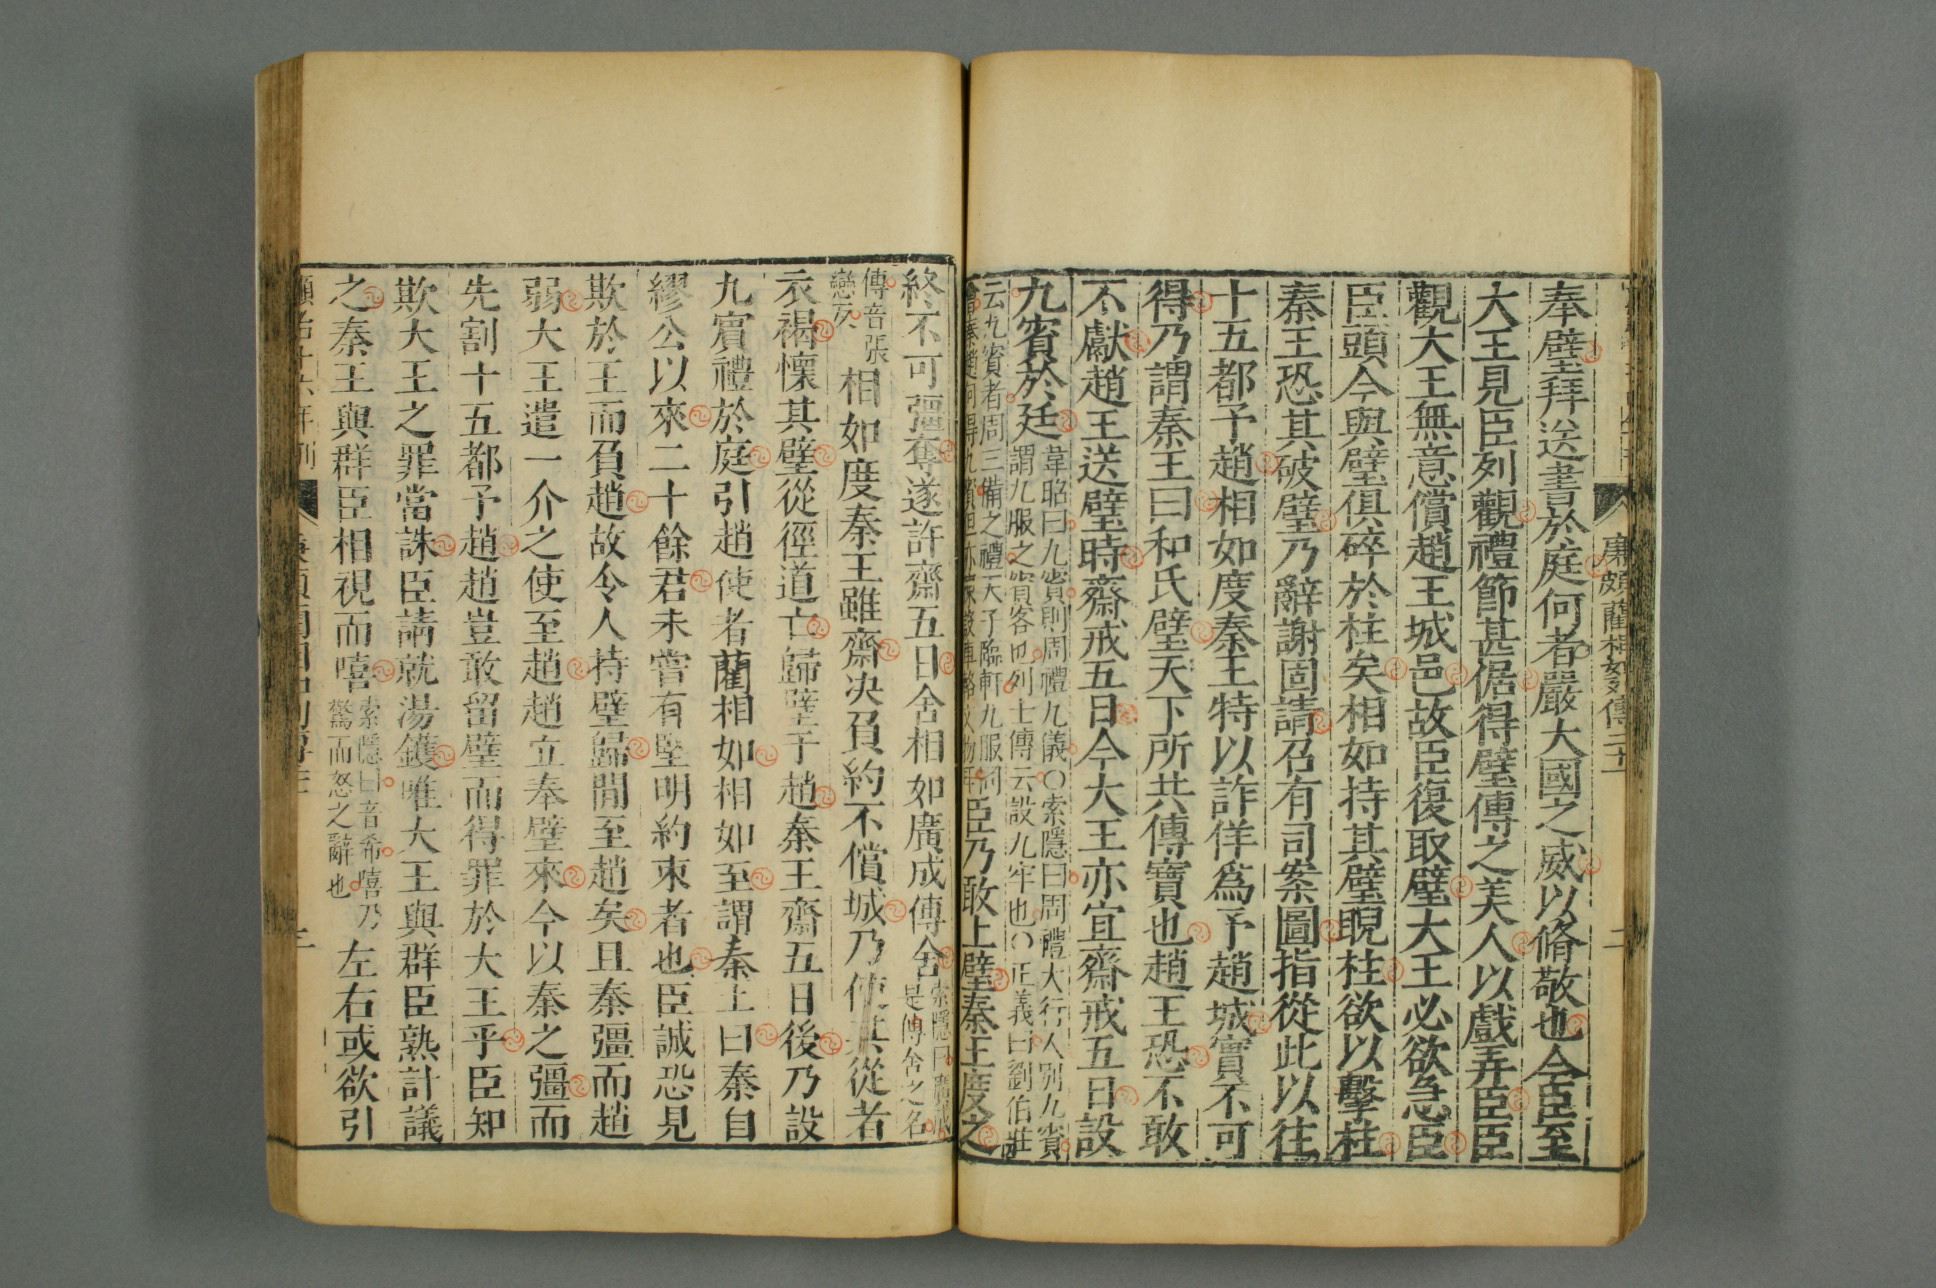 廉頗藺相如傳二十一
二
奉璧拜送書於庭何者嚴大國之威以脩敬也今臣至
大王見臣列觀禮節甚倨得璧傳之美人以戲弄臣臣
觀大王無意償趙王城邑故臣復取璧大王必欲急臣
臣頭今與璧俱碎於柱矣相如持其璧睨柱欲以擊柱
秦王恐其破璧乃辭謝固請召有司案圖指從此以往
十五都予趙相如度秦王特以詐佯為予趙城實不可
得乃謂秦王曰和氏璧天下所共傳寶也趙王恐不敢
不獻趙王送璧時齋戒五日今大王亦宜齋戒五日設
九賓於廷
韋昭曰九賓則周禮九儀○索隱曰周禮大行人別九賓
謂九服之賓客也列士傳云設九牢也○正義曰劉伯莊
云九賓者周王備之禮天子臨軒九服同
臣乃敢上璧秦王度之
終不可彊奪遂許齋五日舍相如廣成傳舍
索隱曰廣成
是傳舍之名
傳音張
戀反
相如度秦王雖齋決負約不償城乃使其從者
衣褐懷其璧從徑道亡歸璧于趙秦王齋五日後乃設
九賓禮於庭引趙使者藺相如相如至謂秦王曰秦自
繆公以來二十餘君未嘗有堅明約束者也臣誠恐見
欺於王而負趙故令人持璧歸閒至趙矣且秦彊而趙
弱大王遣一介之使至趙趙立奉璧來今以秦之彊而
先割十五都予趙趙豈敢留璧而得罪於大王乎臣知
欺大王之罪當誅臣請就湯鑊唯大王與群臣熟計議
之秦王與群臣相視而嘻
索隱曰音希嘻乃
驚而怒之辭也
左右或欲引
三